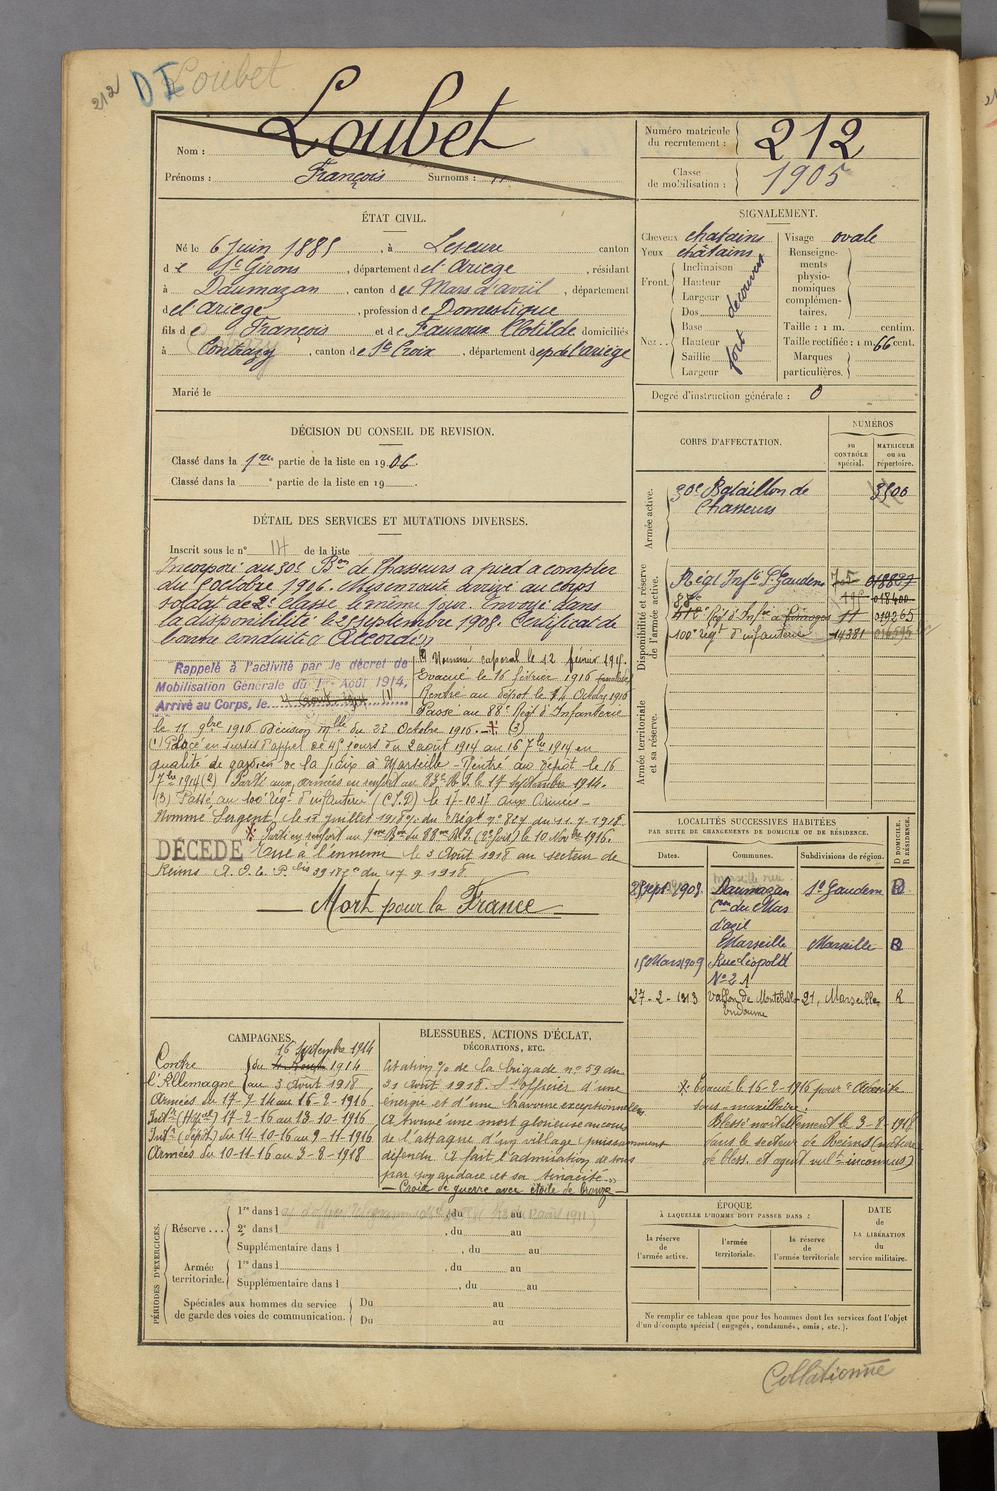 212 DI Loubet
Nom : Loubet
Prénoms : François Surnoms : "
Numéro matricule
du recrutement : 212
Classe
de mobilisation : 1905
ÉTAT CIVIL.
Né le 6 Juin 1885, à Lescure canton
de St Girons, département de l'Ariège, résidant
à Daumazan, canton de Mas d'azil, département
de l'Ariège, profession de Domestique
fils de François et de Fauroux Clotilde domiciliés
à Contrazy, canton de Ste Croix, département dep de l'ariège
Marié le
SIGNALEMENT.
Cheveux chatains
Yeux châtains
Front. Inclinaison
Hauteur
Largeur
découvert
Nez.. Dos
Base
Hauteur
Saillie
Largeur
fort
Visage ovale
Renseigne-
ments
physio-
nomiques
complémen-
taires.
Taille : 1 m. centim.
Taille rectifiée : 1 m. 66 cent.
Marques
particulières.
Degré d'instruction générale : 0
DÉCISION DU CONSEIL DE REVISION.
Classé dans la 1re partie de la liste en 1906.
Classé dans la e partie de la liste en 19
DÉTAIL DES SERVICES ET MUTATIONS DIVERSES.
Inscrit sous le n° 114 de la liste
Incorporé au 30e Bon de Chasseurs à pied à compter
du 8 octobre 1906. Mis en route arrivé au corps
soldat de 2e classe le même jour. Envoyé dans
la disponibilité le 25 septembre 1908. Certificat de
bonne conduite Accordé
Rappelé à l'activité par le décret de
Mobilisation Générale du 1er Août 1914,
Arrivé au Corps, le 4 Août 1914 (1)
Nommé caporal le 12 février 191
Evacué le 16 février 1916
Rentré au dépôt le 14 Octobre 1916
Passé au 88e Régt d'Infanterie
le 11 9bre 1916 Décision mlle du 22 Octobre 1916. (3)
(1) Placé en sursis d'appel de 45 jours du 2 août 1914 au 16 7bre 1914 en
qualité de gardien de la paix à Marseille - Rentré au Dépôt le 16
7bre 1914 (2) Parti aux armées en renfort au 83e R.I. le 17 septembre 1914.
(3) Passé au 100e régt d'infanterie (C.I.D) le 17-10-17 aux Armées -
Nommé Sergent, le 12 juillet 1918 o/. du Régt n° 827 du 11.7.1918
Parti en renfort au 88me R.I. le 10 Novbre 1916.
DÉCÉDÉ Tué à l'ennemi le 3 Août 1918 au secteur de
Reims du 17 9 1918.
Mort pour la France
CORPS D'AFFECTATION.
NUMÉROS
au
CONTRÔLE
spécial.
MATRICULE
ou au
répertoire.
Armée active.
30e Bataillon de 3500
Chasseurs
Disponibilité et réserve
de l'armée active.
Régt Infie St Gaudens 705 018827
88e
Régt d'Infie à Limoges 11 019265
100e régt d'infanterie 14381
Armée territoriale
et sa réserve.
LOCALITÉS SUCCESSIVES HABITÉES
PAR SUITE DE CHANGEMENTS DE DOMICILE OU DE RÉSIDENCE.
Dates. Communes. Subdivisions de région. D DOMICILE. R RÉSIDENCE.
25 sept. 1908. Daumazan St Gaudens D
con du Mas
d'azil
Marseille Marseille R
15 Mars 1909 Rue Léopold
N° 2 A
27-2-1913 vallon de Montebello 21, Marseille R
Endoume
CAMPAGNES.
16 Septembre 1914
Contre du 4 Août 1914
l'Allemagne au 3 Août 1918
Armées du 17-9-14 au 16-2-1916
Intr (Hôpal) 17-2-16 au 13-10-1916
Intr (dépôt) du 14-10-16 au 9-11-1916
Armées du 10-11-16 au 3-8-1918
BLESSURES, ACTIONS D'ÉCLAT,
DÉCORATIONS, ETC.
Citation o/o de la brigade n° 59 du
31 Août 1918. S/officier d'une
énergie et d'une bravoure exceptionnelles.
A trouvé une mort glorieuse au cours
de l'attaque d'un village puissamment
défendu. A fait l'admiration de tous
par son audace et sa ténacité -
- Croix de guerre avec étoile de bronze -
Evacué le 16-2-1916 pour Adénite
sous-maxillaire.
Blessé mortellement le 3-8-1918
dans le secteur de Reims (nature
de bless. et agent vult inconnus)
PÉRIODES D'EXERCICES.
Réserve... 1re dans l , du au
2e dans l , du au
Supplémentaire dans l , du au
Armée
territoriale. 1re dans l , du au
Supplémentaire dans l , du au
Spéciales aux hommes du service
de garde des voies de communication.
Du au
Du au
ÉPOQUE
À LAQUELLE L'HOMME DOIT PASSER DANS :
la réserve
de
l'armée active.
l'armée
territoriale.
la réserve
de
l'armée territoriale
DATE
de
LA LIBÉRATION
du
service militaire.
Ne remplir ce tableau que pour les hommes dont les services font l'objet
d'un décompte spécial (engagés, condamnés, omis, etc.).
Collationné